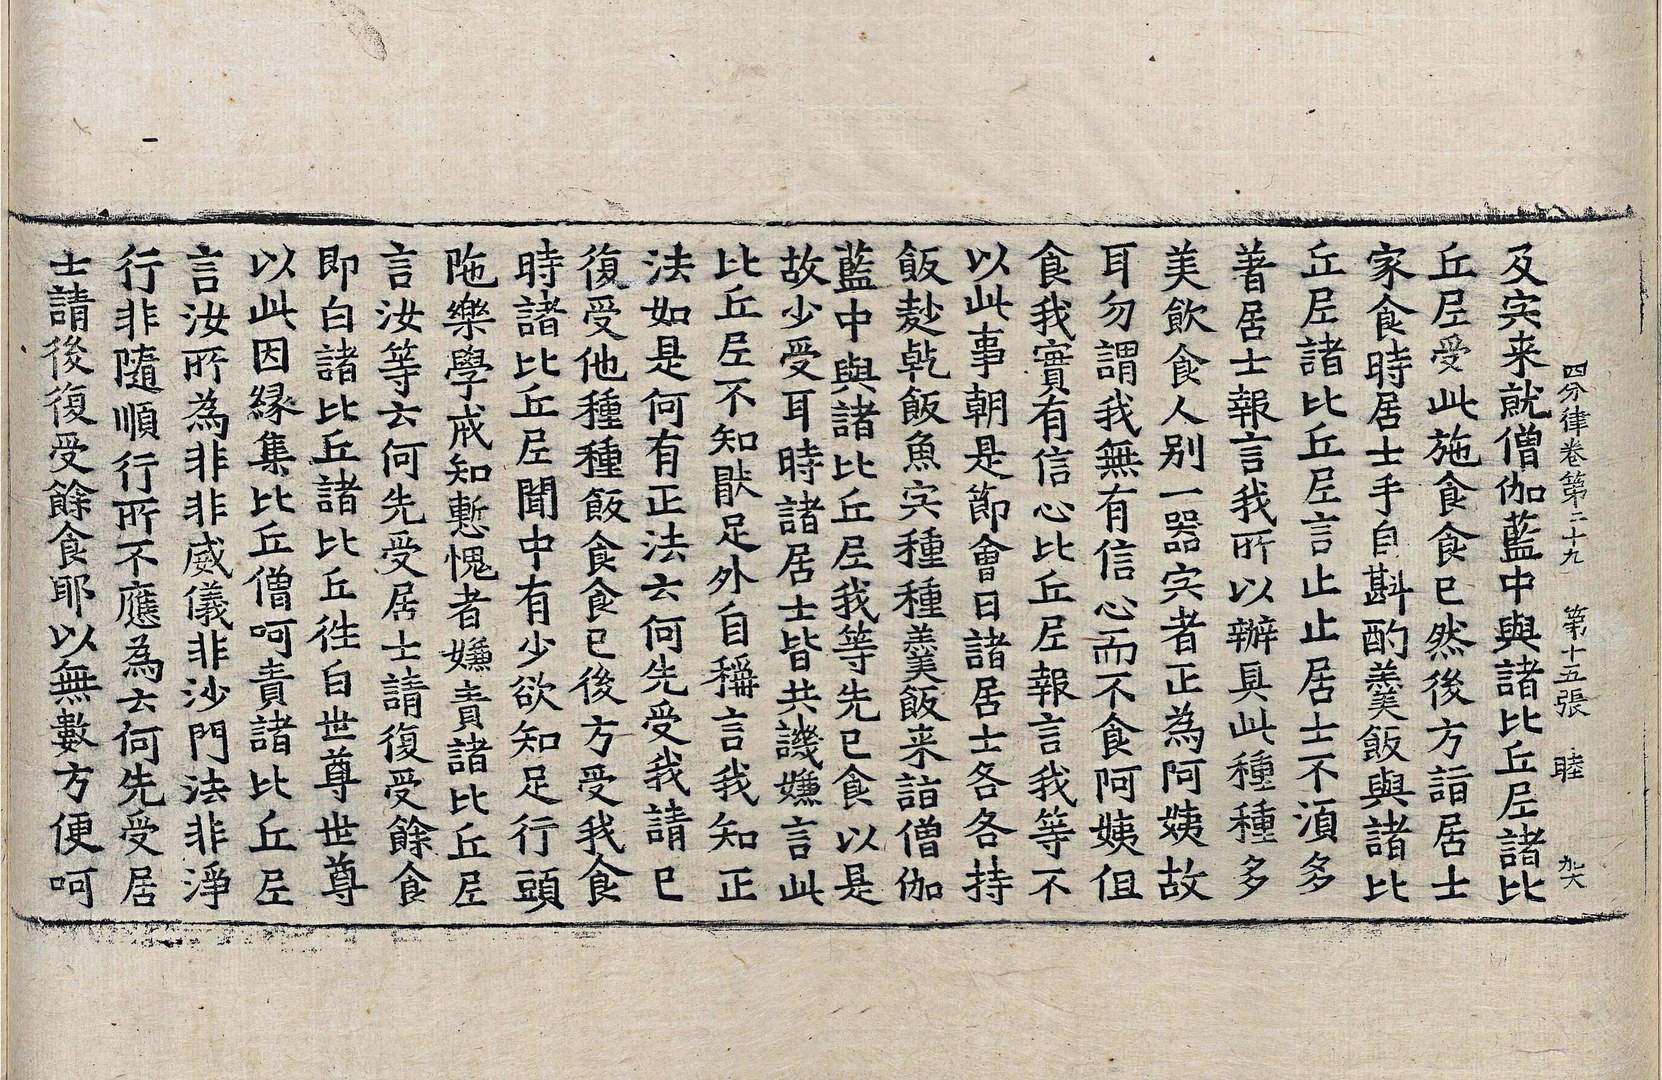 四分律卷第二十九 第十五張 睦
及宍来就僧伽藍中與諸比丘𡰱諸比
丘𡰱受此施食食已然後方詣居士
家食時居士手自斟酌羹飯與諸比
丘𡰱諸比丘𡰱言止止居士不湏多
著居士報言我所以辦具此種種多
美飲食人別一器宍者正為阿姨故
耳勿謂我無有信心而不食阿姨但
食我實有信心比丘𡰱報言我等不
以此事朝是節會日諸居士各各持
飯麨乹飯魚宍種種羹飯来詣僧伽
藍中與諸比丘𡰱我等先已食以是
故少受耳時諸居士皆共譏嫌言此
比丘𡰱不知猒足外自稱言我知正
法如是何有正法云何先受我請已
復受他種種飯食食已後方受我食
時諸比丘𡰱聞中有少欲知足行頭
陁樂學戒知慙愧者嫌責諸比丘𡰱
言汝等云何先受居士請復受餘食
即白諸比丘諸比丘徃白世尊世尊
以此因緣集比丘僧呵責諸比丘𡰱
言汝所為非非威儀非沙門法非淨
行非隨順行所不應為云何先受居
士請後復受餘食耶以無數方便呵